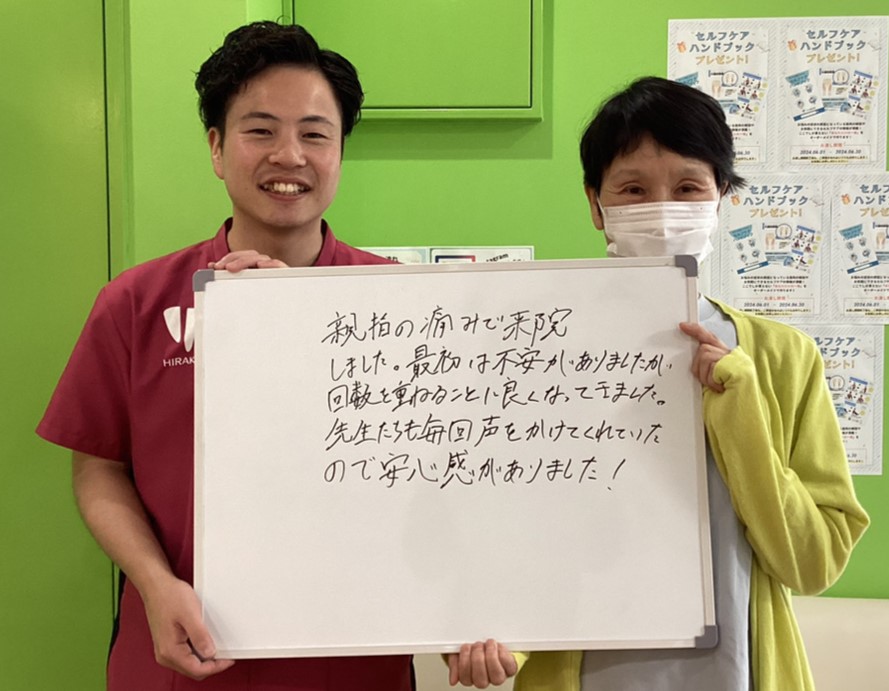 親指の痛みで来院
しました。最初は不安がありましたが
回数を重ねるごとに良くなってきました。
先生たちも毎回声をかけてくれていた
ので安心感がありました!
HIRAK
セルフケア
ハンドブック
プレゼント!
セルフケア
ハンドブック
プレゼント!
2024.06.01 - 2024.06.30
2024.06.01 - 2024.06.30
セルフケア
ハンドブック
プレゼント!
セルフケア
ハンドブック
プレゼント!
2024.06.01 - 2024.06.30
agram